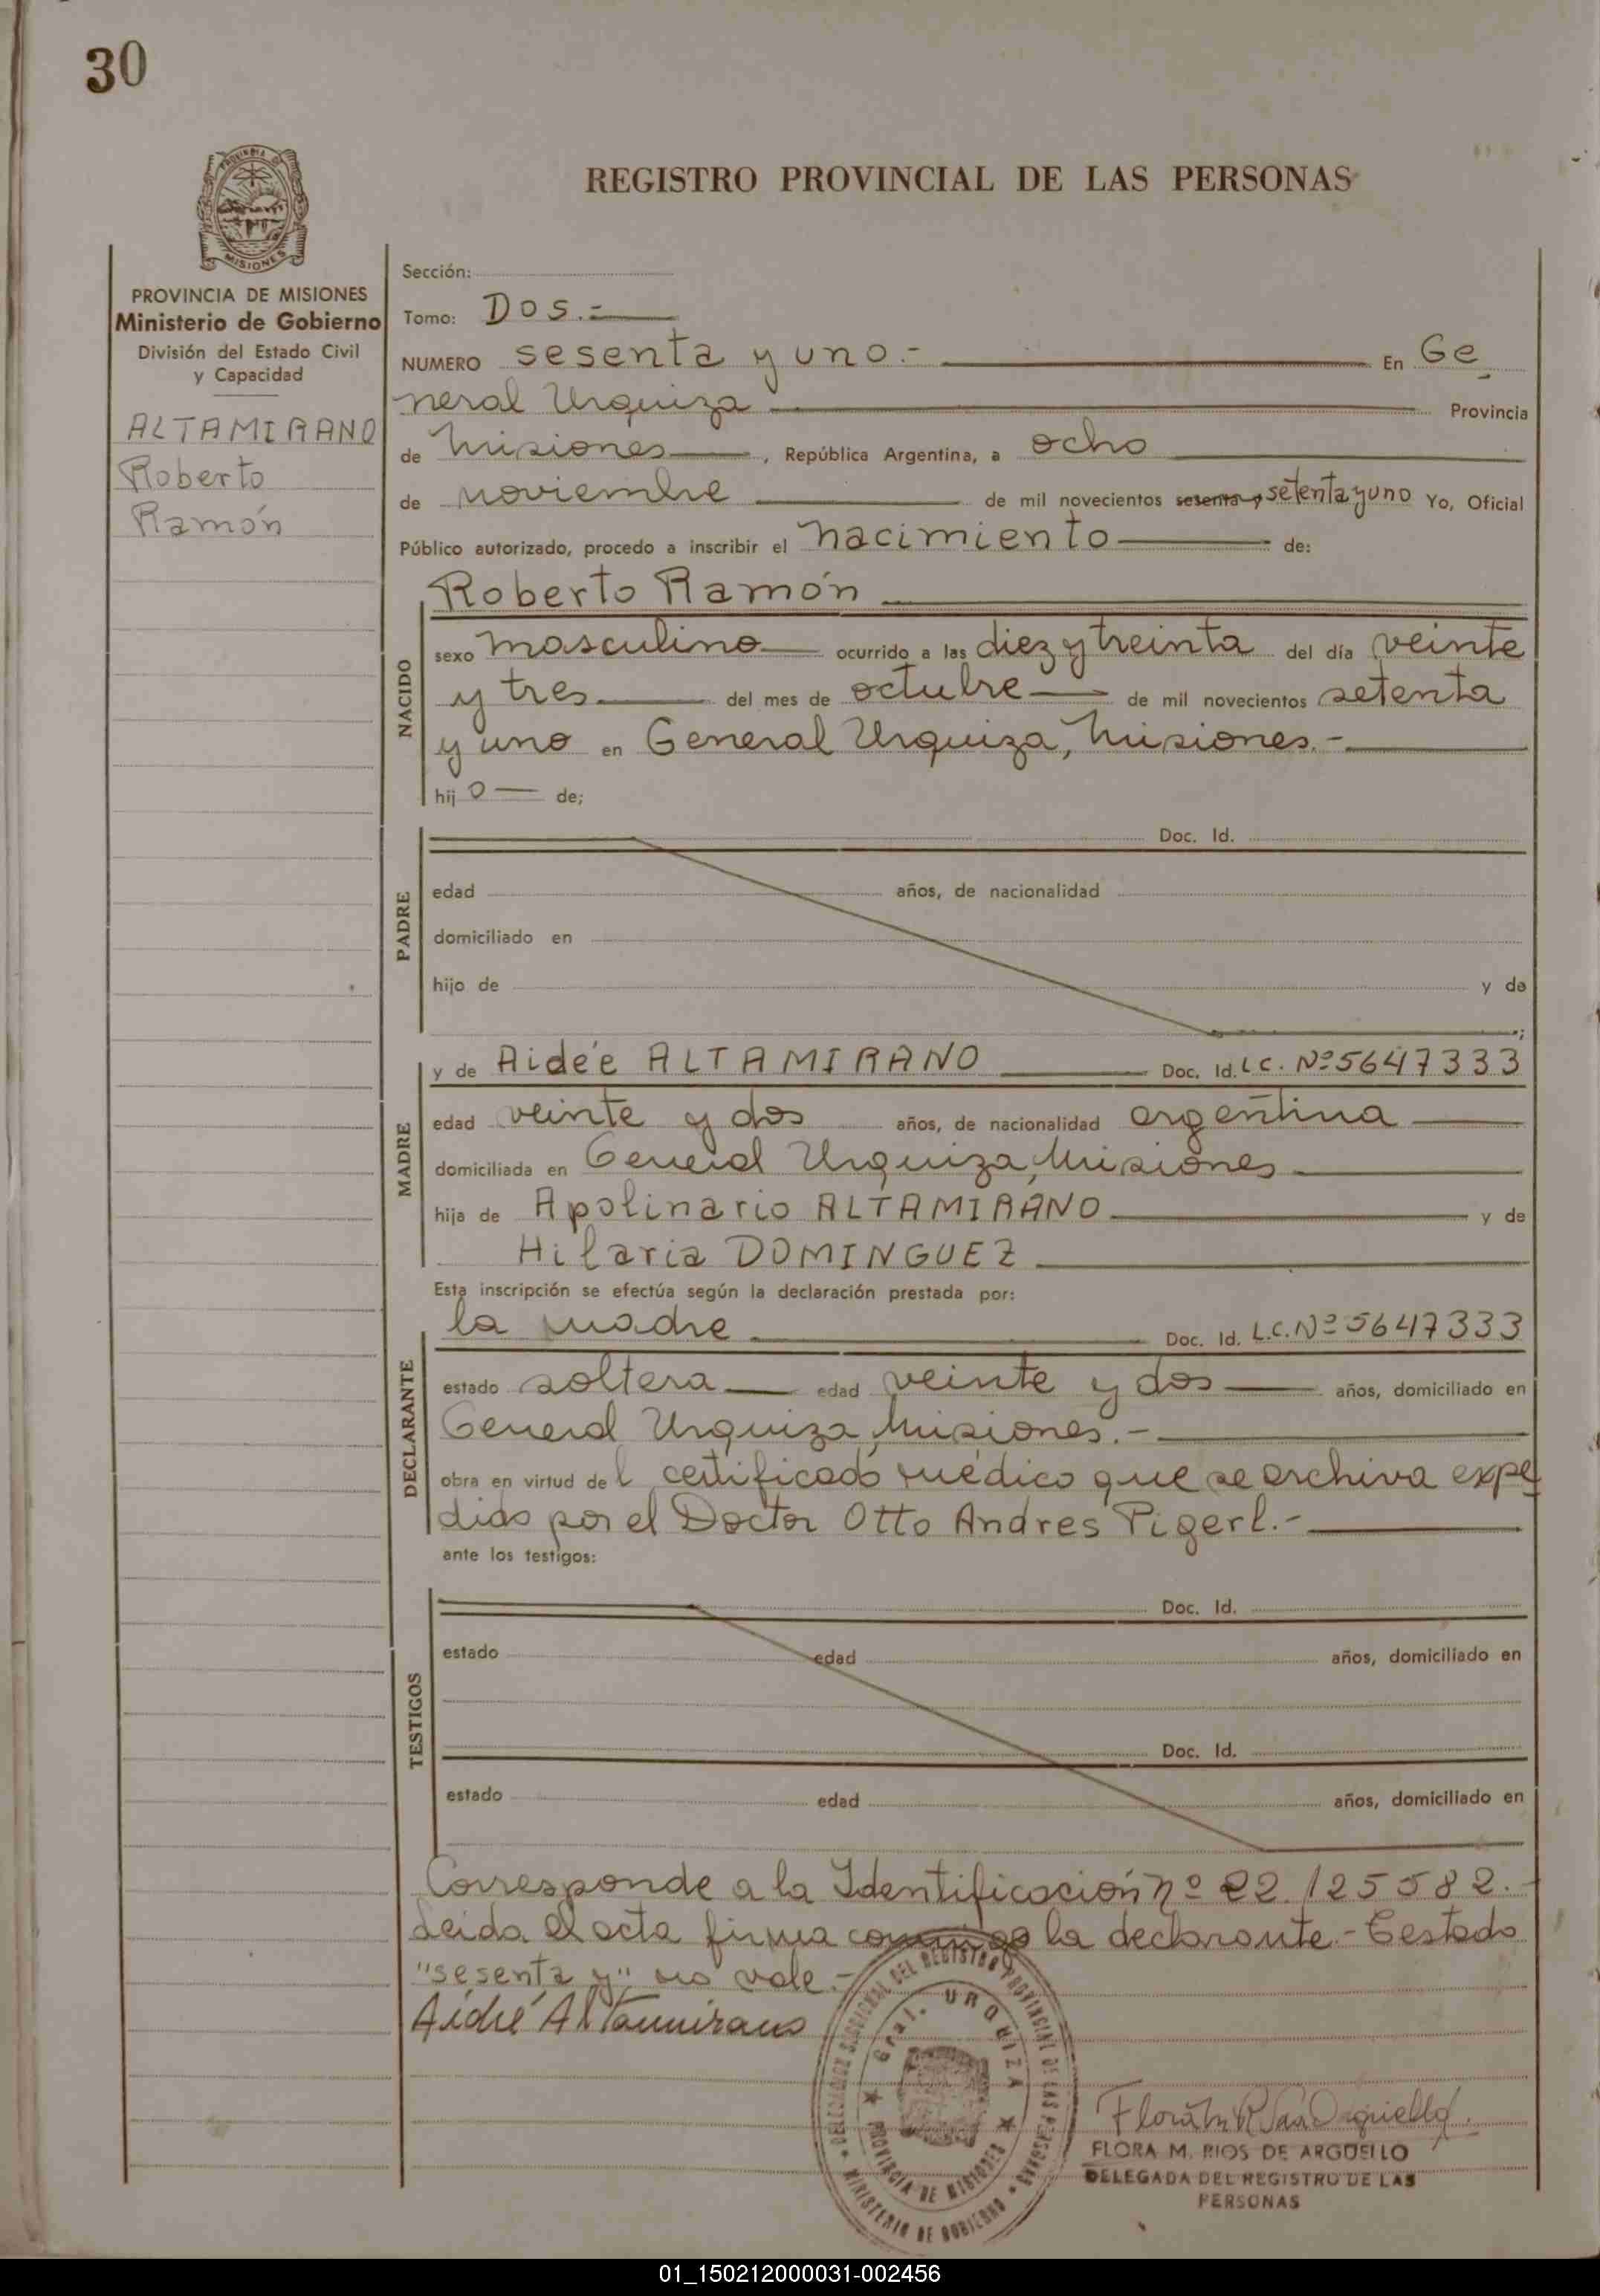 30
PROVINCIA DE MISIONES
Ministerio de Gobierno
División del Estado Civil
y Capacidad
ALTAMIRANO
Roberto
Ramón
REGISTRO PROVINCIAL DE LAS PERSONAS
Sección:
Tomo: Dos.-
NUMERO sesenta y uno.- En Ge
neral Urquiza Provincia
de Misiones, República Argentina, a ocho
de noviembre de mil novecientos sesenta y setenta y uno Yo, Oficial
Público autorizado, procedo a inscribir el nacimiento de:
NACIDO
Roberto Ramón
sexo masculino ocurrido a las diez y treinta del día veinte
y tres del mes de octubre de mil novecientos setenta
y uno en General Urquiza, Misiones.-
hij o de;
PADRE
Doc. Id.
edad años, de nacionalidad
domiciliado en
hijo de y de
;
MADRE
y de Aidée ALTAMIRANO Doc. Id. L.C. Nº 5647333
edad veinte y dos años, de nacionalidad argentina
domiciliada en General Urquiza, Misiones
hija de Apolinario ALTAMIRANO y de
Hilaria DOMINGUEZ
Esta inscripción se efectúa según la declaración prestada por:
DECLARANTE
la madre Doc. Id. L.C. Nº 5647333
estado soltera edad veinte y dos años, domiciliado en
General Urquiza, Misiones.-
obra en virtud de l certificado médico que se archiva expe
dido por el Doctor Otto Andres Pigerl.-
ante los testigos:
TESTIGOS
Doc. Id.
estado edad años, domiciliado en
Doc. Id.
estado edad años, domiciliado en
Corresponde a la Identificación nº 22.125582.-
Leida el acta firma conmigo la declarante.- Testado
"sesenta y" no vale.-
Aidée Altamirano
DELEGACION SECCIONAL DEL REGISTRO PROVINCIAL DE LAS PERSONAS
Gral. URQUIZA
PROVINCIA DE MISIONES
MINISTERIO DE GOBIERNO
FLORA M. RIOS DE ARGÜELLO
DELEGADA DEL REGISTRO DE LAS
PERSONAS
01_150212000031-002456